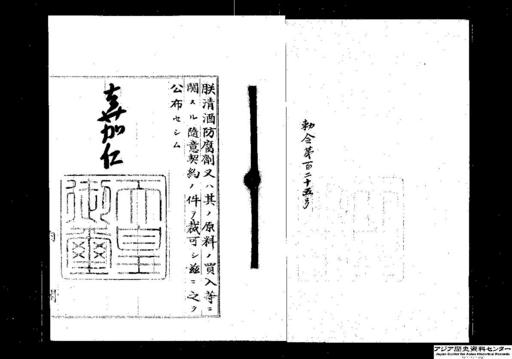 勅令第百二十五号
朕清酒防腐剤又ハ其ノ原料ノ買入等ニ
関スル随意契約ノ件ヲ裁可シ茲ニ之ヲ
公布セシム
嘉仁
天皇
御璽
内閣
アジア歴史資料センター
Japan Center for Asian Historical Records